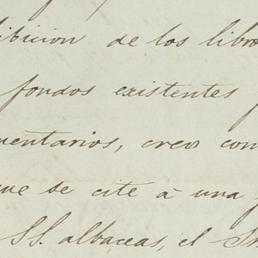 ibicion de los libro
fondos existentes
mentarios, creo con
que se cite à una
SS. albaceas, el Sr